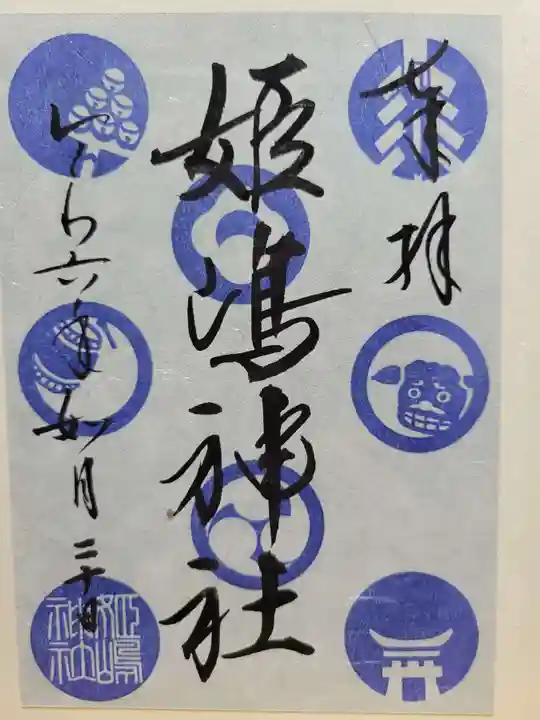 奉拝
姫嶋神社
令和六年如月二十日
姫嶋神社